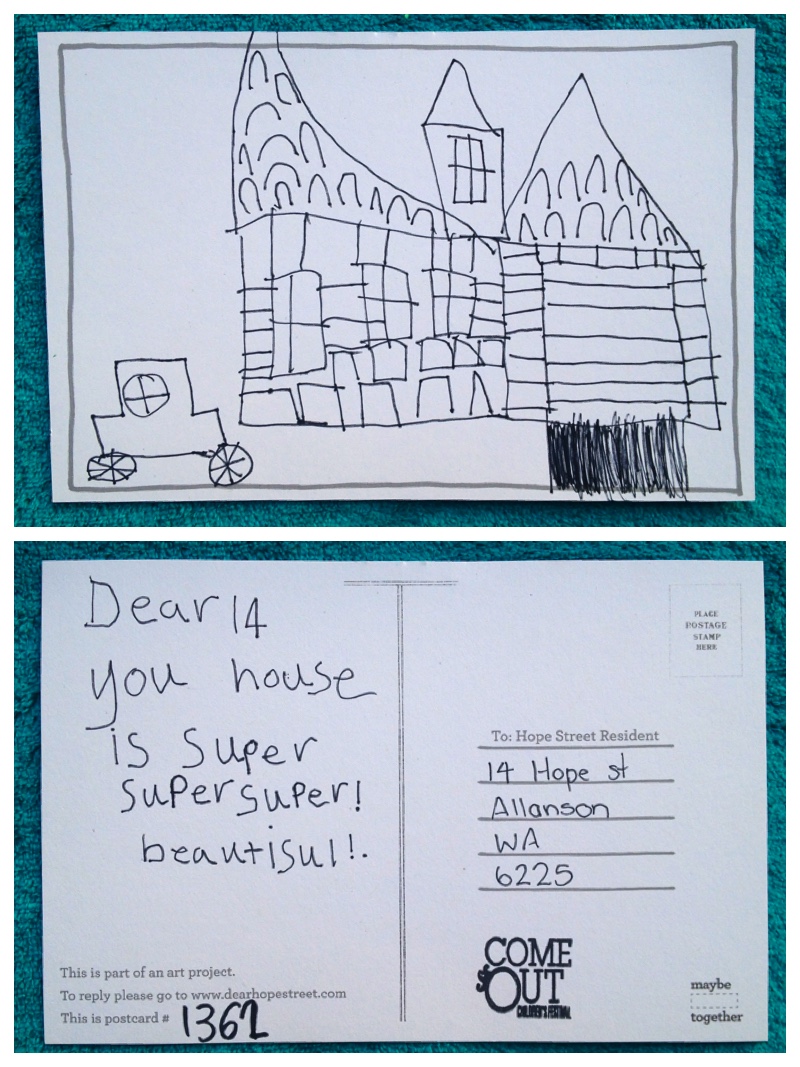 Dear 14
you house
is super
super super!
beautisul!.
This is part of an art project.
To reply please go to www.dearhopestreet.com
This is postcard # 1362
PLACE
POSTAGE
STAMP
HERE
To: Hope Street Resident
14 Hope st
Allanson
WA
6225
COME
OUT
CHILDREN'S FESTIVAL
maybe
together